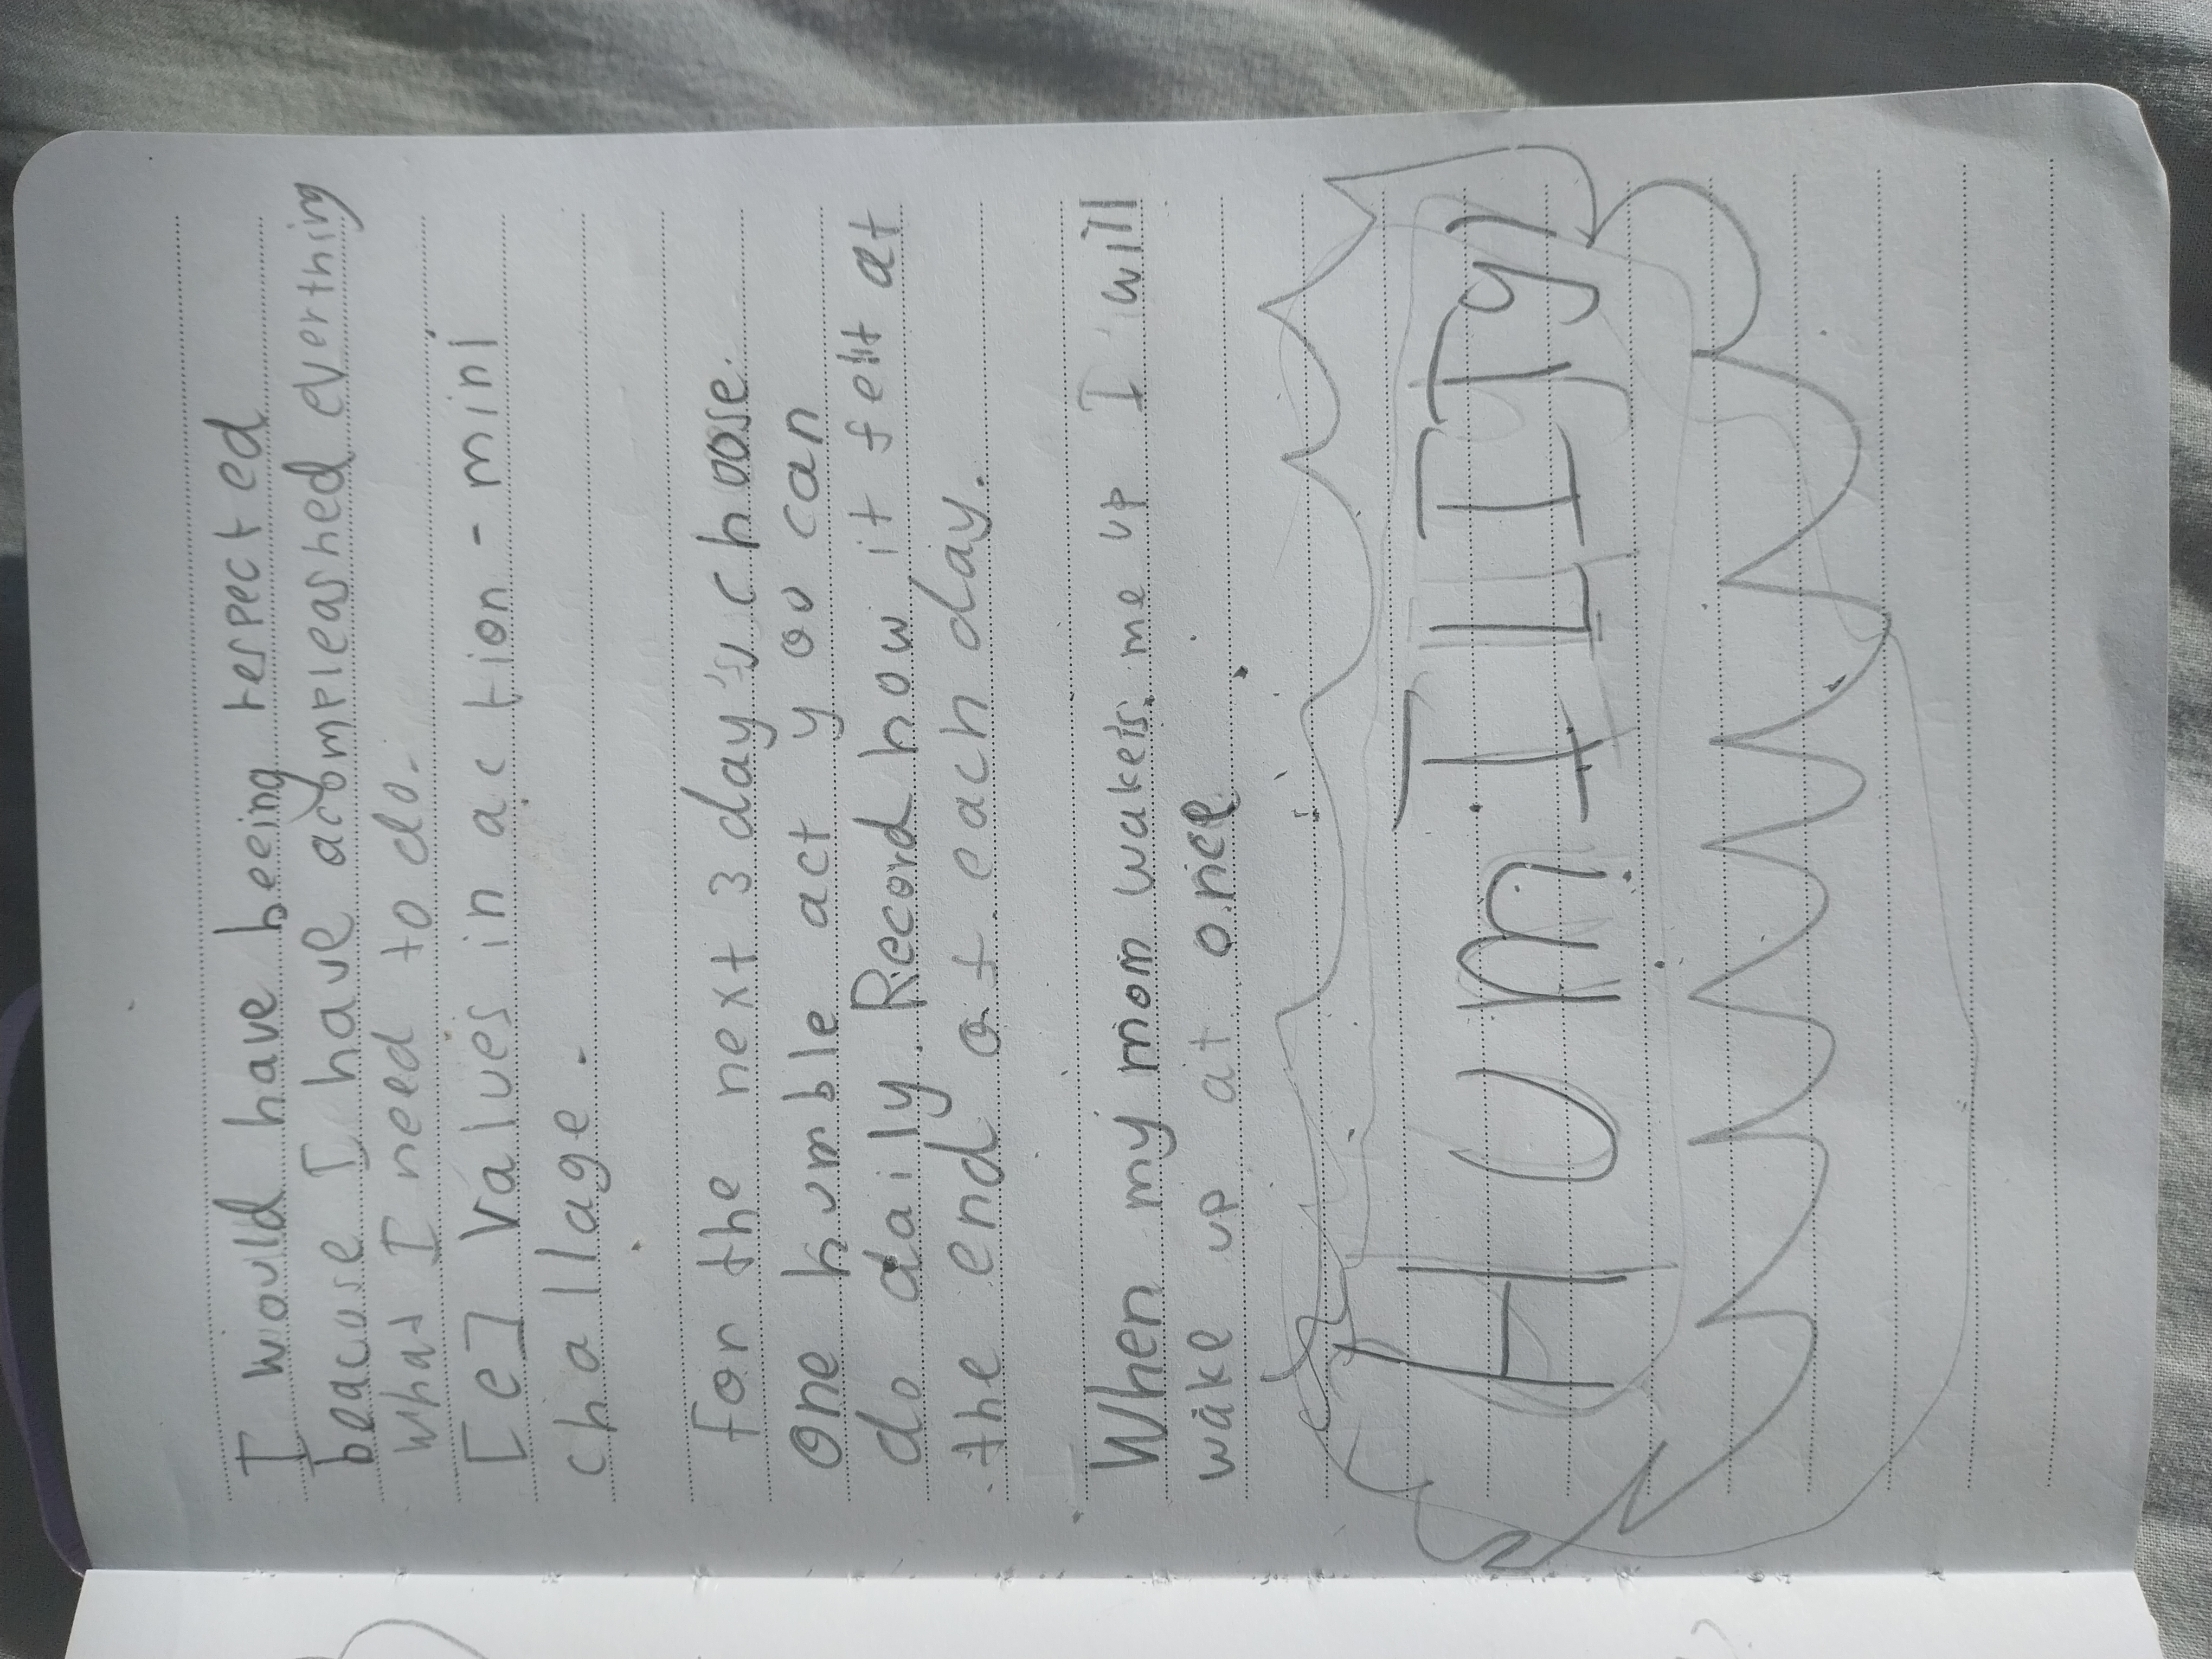 I would have being respected
beacuse I have accompleashed everthing
what I need to do.
[e] Values in action - mini
challage.
for the next 3 day's choose
One humble act you can
do daily. Record how it felt at
the end of each day.
When my mom wakes me up I will
wake up at once
HUmILITy